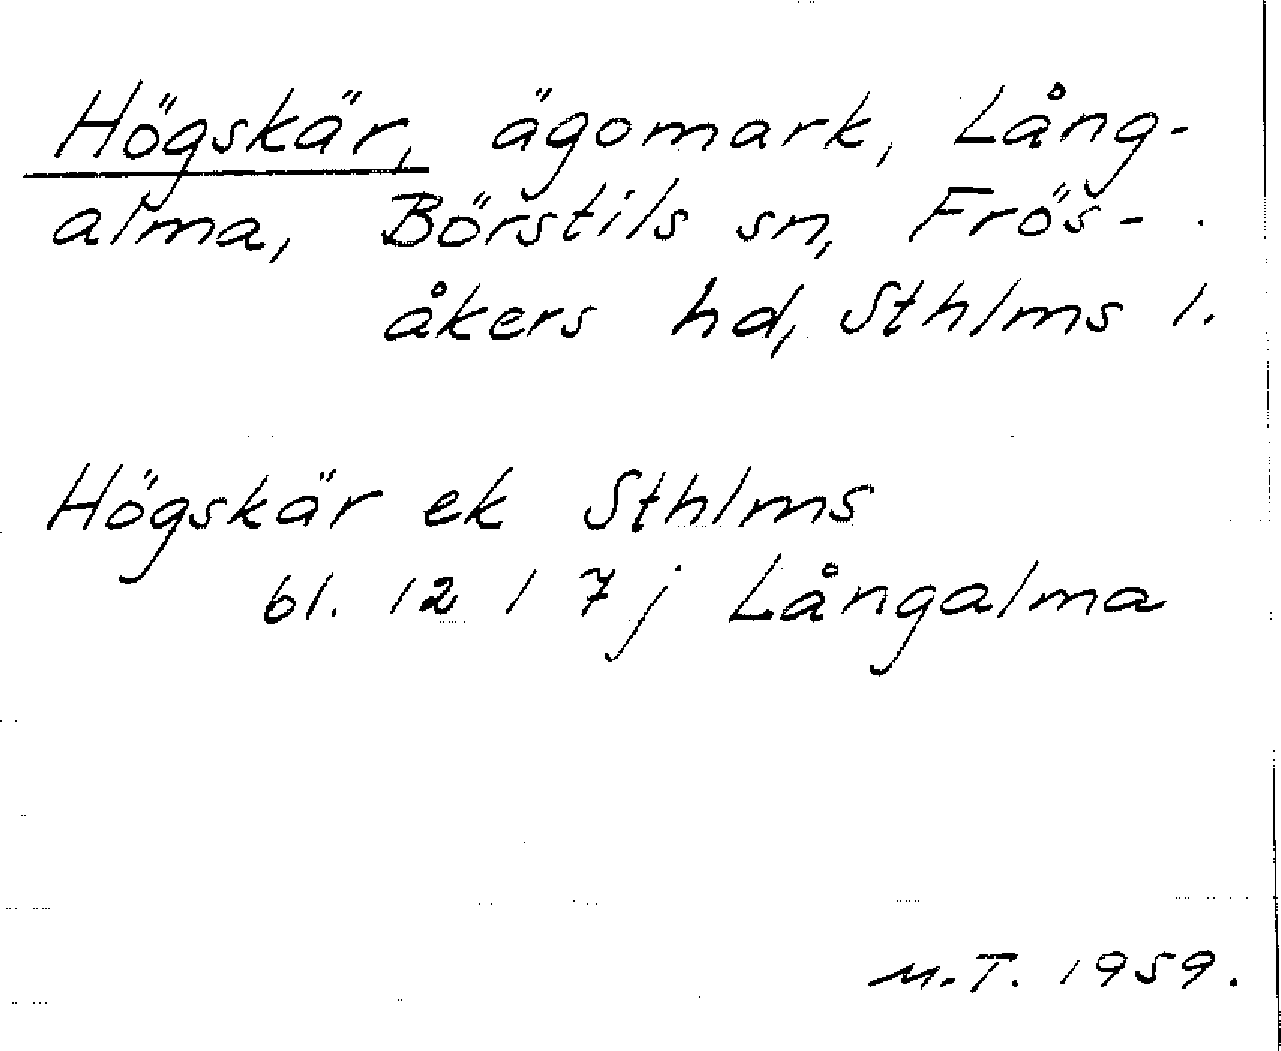 Högskär, ägomark, Lång-
alma, Börstils sn, Frös-
åkers hd, Sthlms l.
Högskär ek Sthlms
bl. 12 l 7j Långalma
M.T. 1959.